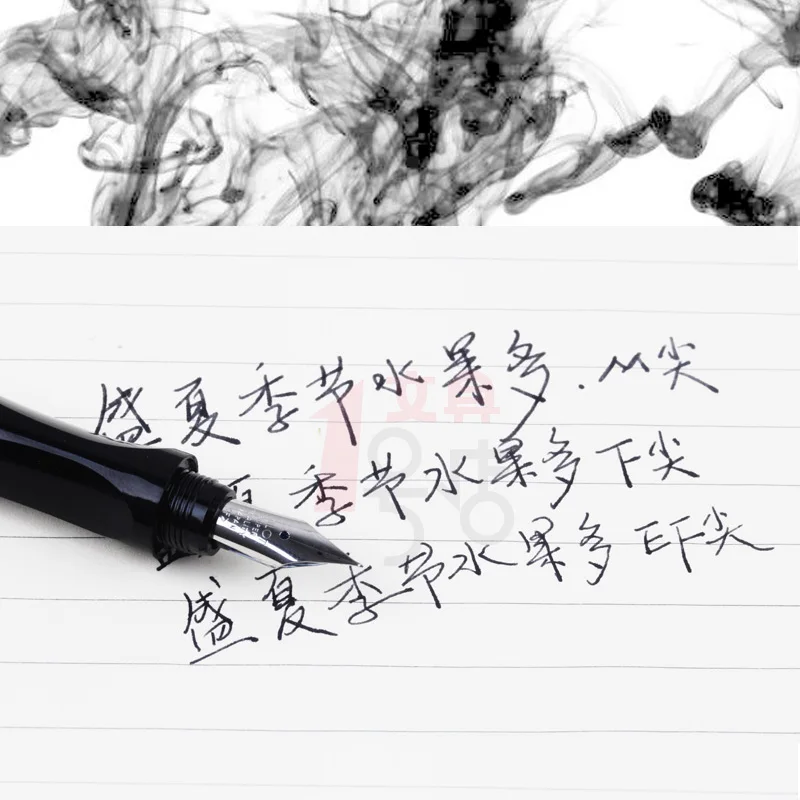 盛夏季节水果多.M尖
夏季节水果多下尖
盛夏季节水果多EF尖